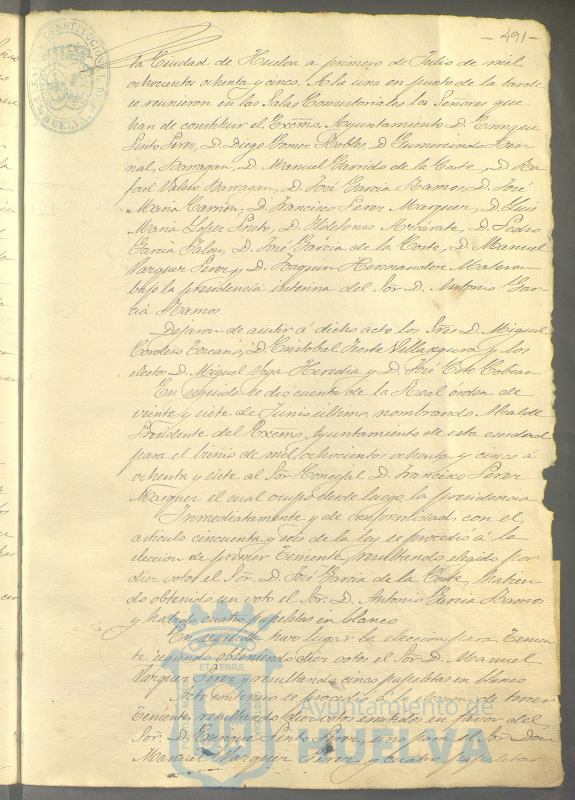 - 491 -
la Ciudad de Huelva a primero de Julio de mil
ochocientos ochenta y cinco. A la una en punto de la tarde
se reunieron en las Salas Consistoriales los Señores que
han de constituir el Excmo. Ayuntamiento D. Enrique
Pinto Perez, D. Diego Gomez Robles D. Gumersindo
Barragan, D. Manuel Garrido de la Corte, D. Ra-
fael Valdés Barragan, D. José Garcia Ramos, D. José
Maria Carrion, D. Francisco Perez Marquez, D. Luis
Maria López Prieto, D. Ildefonso Arrárate, D. Pedro
Garcia Jalon, D. José Garcia de la Corte, D. Manuel
Vazquez Perez y D. Joaquin Hernandez Mateos
bajo la presidencia interina del Sor. D. Antonio Gar-
cia Ramos
Dejaron de asistir a dicho acto los Sres D. Miguel
Cordero D. Cristobal Villaseñor y los
electos D. Miguel Vega Heredia y D. José
En seguida se dió cuenta de la Real órden de
veinte y siete de Junio último, nombrando Alcalde
Presidente del Excmo. Ayuntamiento de esta ciudad
para el bienio de mil ochocientos ochenta y cinco á
ochenta y siete al Sor. Concejal D. Francisco Perez
Marquez el cual ocupó desde luego la presidencia
Inmediatamente y de conformidad con el
articulo cincuenta y seis de la ley se procedió á la
eleccion de primer Teniente, resultando elegido por
diez votos el Sor. D. José Garcia de la Corte, habien-
do obtenido un voto el Sor. D. Antonio Garcia Ramos
y cuatro papeletas en blanco
En seguida tuvo lugar la eleccion para Tenien-
te segundo obteniendo diez votos el Sor. D. Manuel
Vazquez Perez y resultando cinco papeletas en blanco
Acto continuo se procedió á la eleccion de tercer
Teniente, resultando diez votos emitidos en favor del
Sor. D. Enrique Pinto Perez, uno para el Sor Don
Manuel Vazquez Perez y cuatro papeletas
Ayuntamiento de
HUELVA